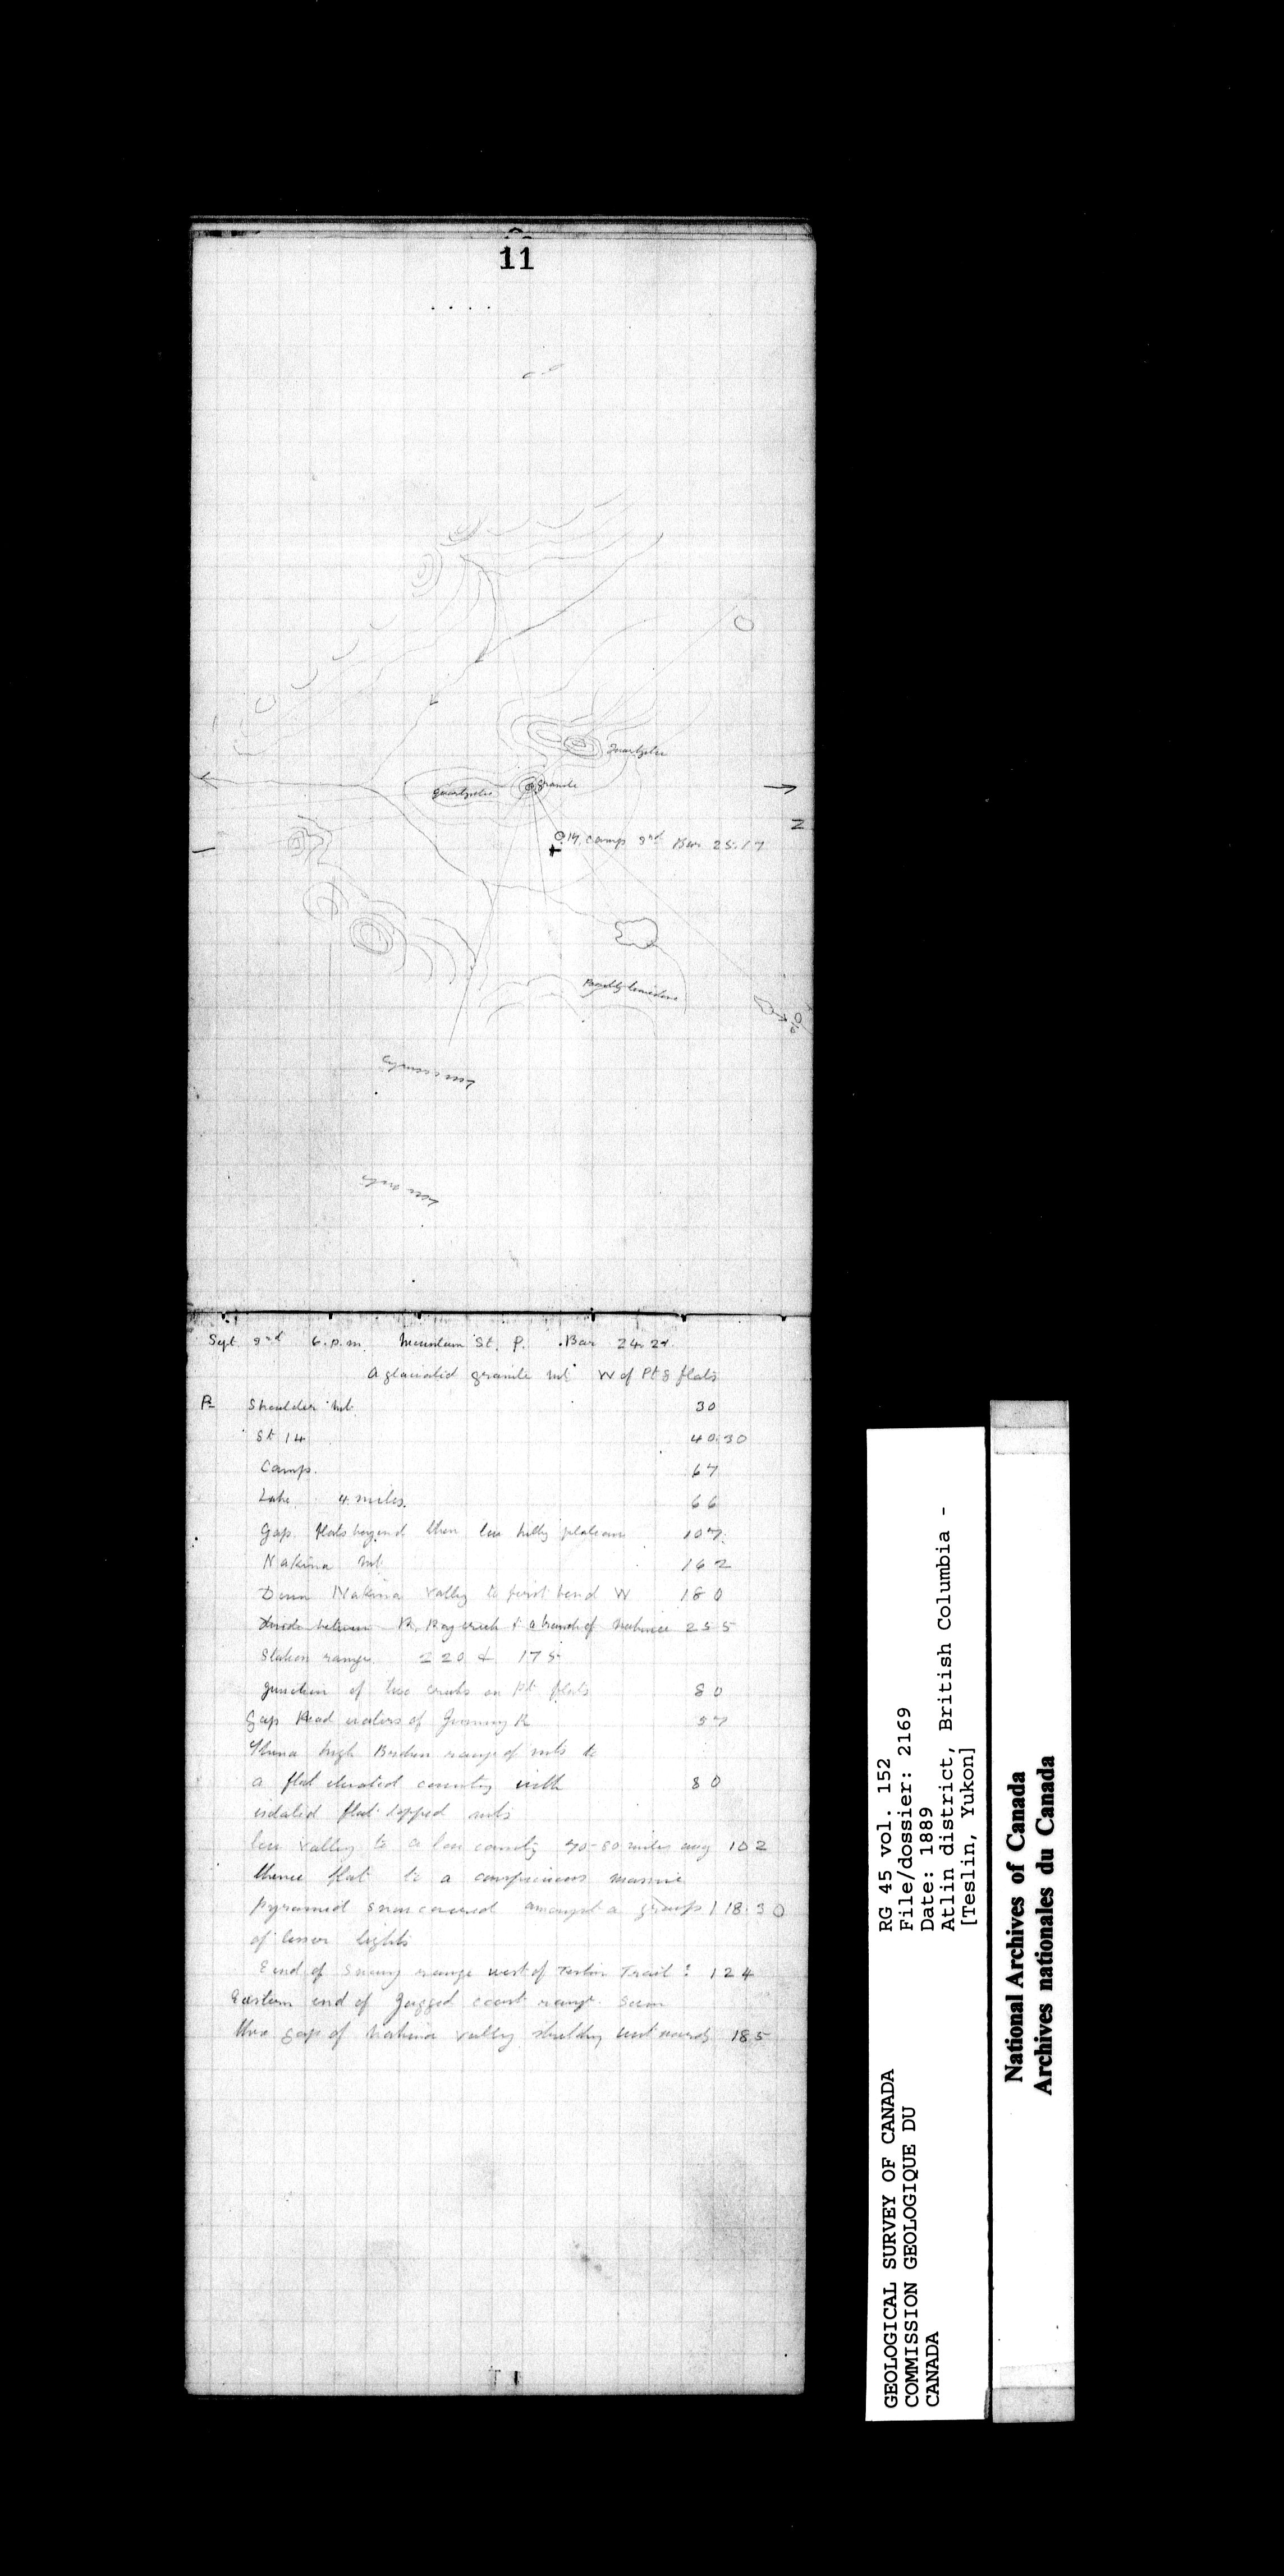 11
Quartzites
quartzites
granite
N
14 Camp 3rd Bar 25.17
Low country
Low mts
Sept 3rd 6. p.m. Mountain St. P. Bar 24.2
A glaciated granite mt W of Pt 8 flats
Shoulder mt. 30
St 14 40.30
Camp. 67
Lake 4 miles. 66
Gap. flats beyond then low hilly plateau 107
Nakina mt 162
Down Nakina valley to first bend W 180
Divide between creek & a branch of Nakina 255
Station range 220 & 175
Junction of two creeks on flats 80
Gap Head waters of R 57
Thence high Broken range of mts to
a flat elevated country with 80
isolated flat topped mts
low valley to a low country 70-80 miles away 102
thence flat to a conspicuous massive
pyramid snow covered amongst a group 118.30
of lesser lights
E end of Snowy range west of Teslin Trail ? 124
Eastern end of Jagged coast range seen
thro gap of Nakina valley stretching westwards 185
RG 45 vol. 152
File/dossier: 2169
Date: 1889
Atlin district, British Columbia -
[Teslin, Yukon]
GEOLOGICAL SURVEY OF CANADA
COMMISSION GEOLOGIQUE DU
CANADA
National Archives of Canada
Archives nationales du Canada